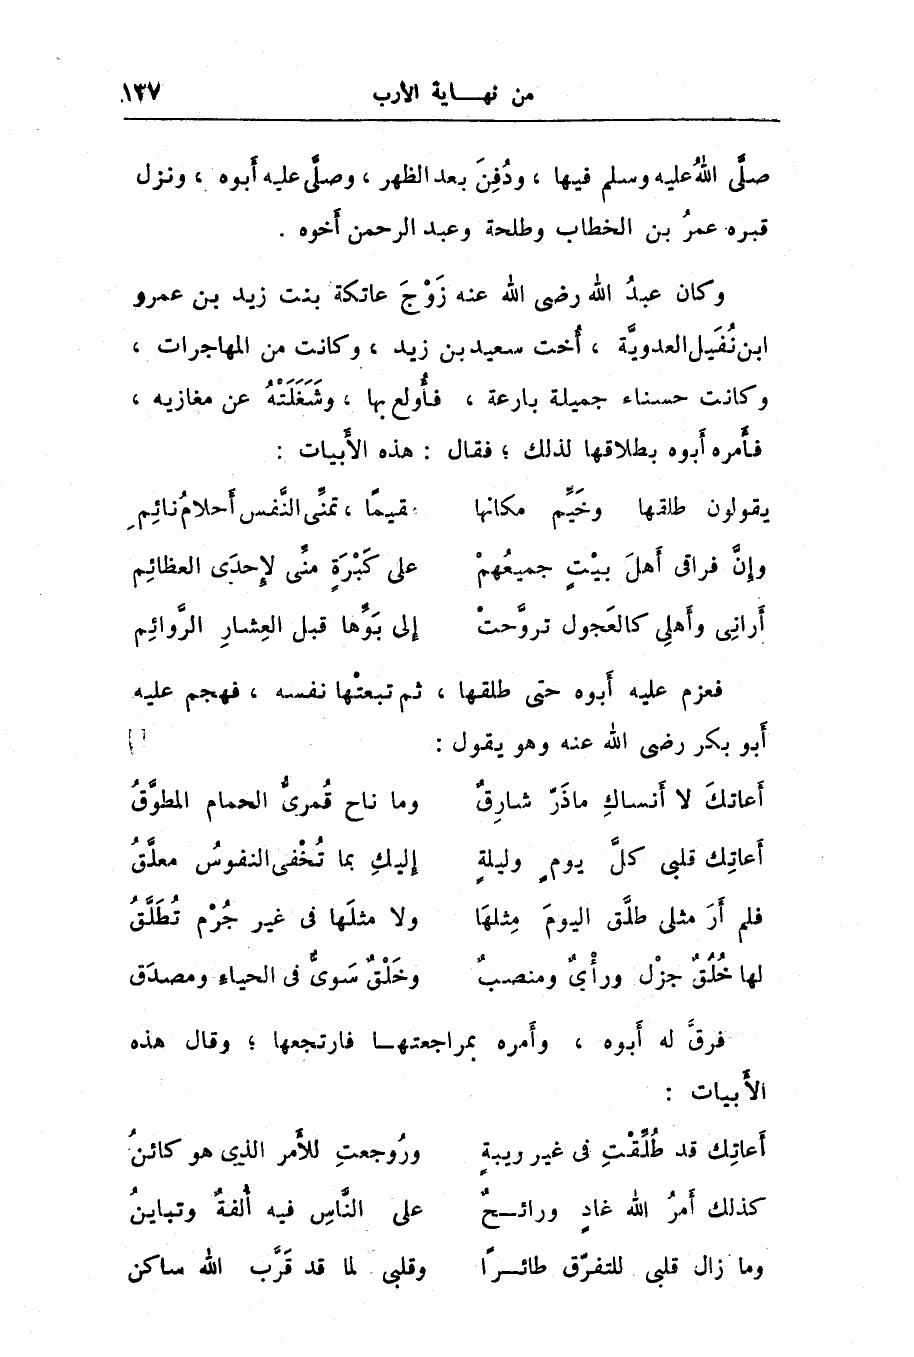 من نهاية الأرب ١٣٧
صلَّى اللهُ عليه وسلم فيها ، ودُفِنَ بعد الظهر ، وصلَّى عليه أبوه ، ونزل
قبره عمرُ بن الخطاب وطلحة وعبد الرحمن أخوه .
وكان عبدُ الله رضى الله عنه زَوْجَ عاتكة بنت زيد بن عمرو
ابن نُفَيل العدويَّة ، أُخت سعيد بن زيد ، وكانت من المهاجرات ،
وكانت حسناء جميلة بارعة ، فأُولع بها ، وشَغَلَتْهُ عن مغازيه ،
فأَمره أَبوه بطلاقها لذلك ؛ فقال : هذه الأَبيات :
يقولون طلقها وخَيِّم مكانها مقيمًا ، تمنِّى النَّفس أَحلامُ نائِمِ
وإِنَّ فراقى أَهلَ بيْتٍ جميعُهمْ على كَبْرَةٍ منِّى لإِحدَى العظائِم
أَرانِى وأَهلِى كالعَجول تروَّحتْ إلى بَوِّها قبل العِشارِ الرَّوائِم
فعزم عليه أَبوه حتى طلقها ، ثم تبعتْها نفسه ، فهجم عليه
أَبو بكر رضى الله عنه وهو يقول :
أَعاتكَ لا أَنساكِ ماذَرّ شارِقٌ وما ناح قُمرىُّ الحمام المطوَّقُ
أَعاتِك قلبى كلَّ يومٍ وليلةٍ إِليكِ بما تُخْفى النفوسُ معلَّقُ
فلم أَرَ مثلى طلَّق اليومَ مِثلهَا ولا مثلَها فى غير جُرْم تُطَلَّقُ
لها خُلُقٌ جزْل ورأْىٌ ومنصبٌ وخَلْقٌ سَوىٌّ فى الحياء ومصدَق
فرقَّ له أَبوه ، وأَمره بمراجعتها فارتجعها ؛ وقال هذه
الأَبيات :
أَعاتِك قد طُلِّقْتِ فى غير ريبةٍ ورُوجعتِ للأَمر الذى هو كائنُ
كذلك أَمرُ الله غادٍ ورائحٌ على النَّاسِ فيه أُلفةٌ وتباينُ
وما زال قلبى للتفرّق طائرًا وقلبى لما قد قَرَّب الله ساكن